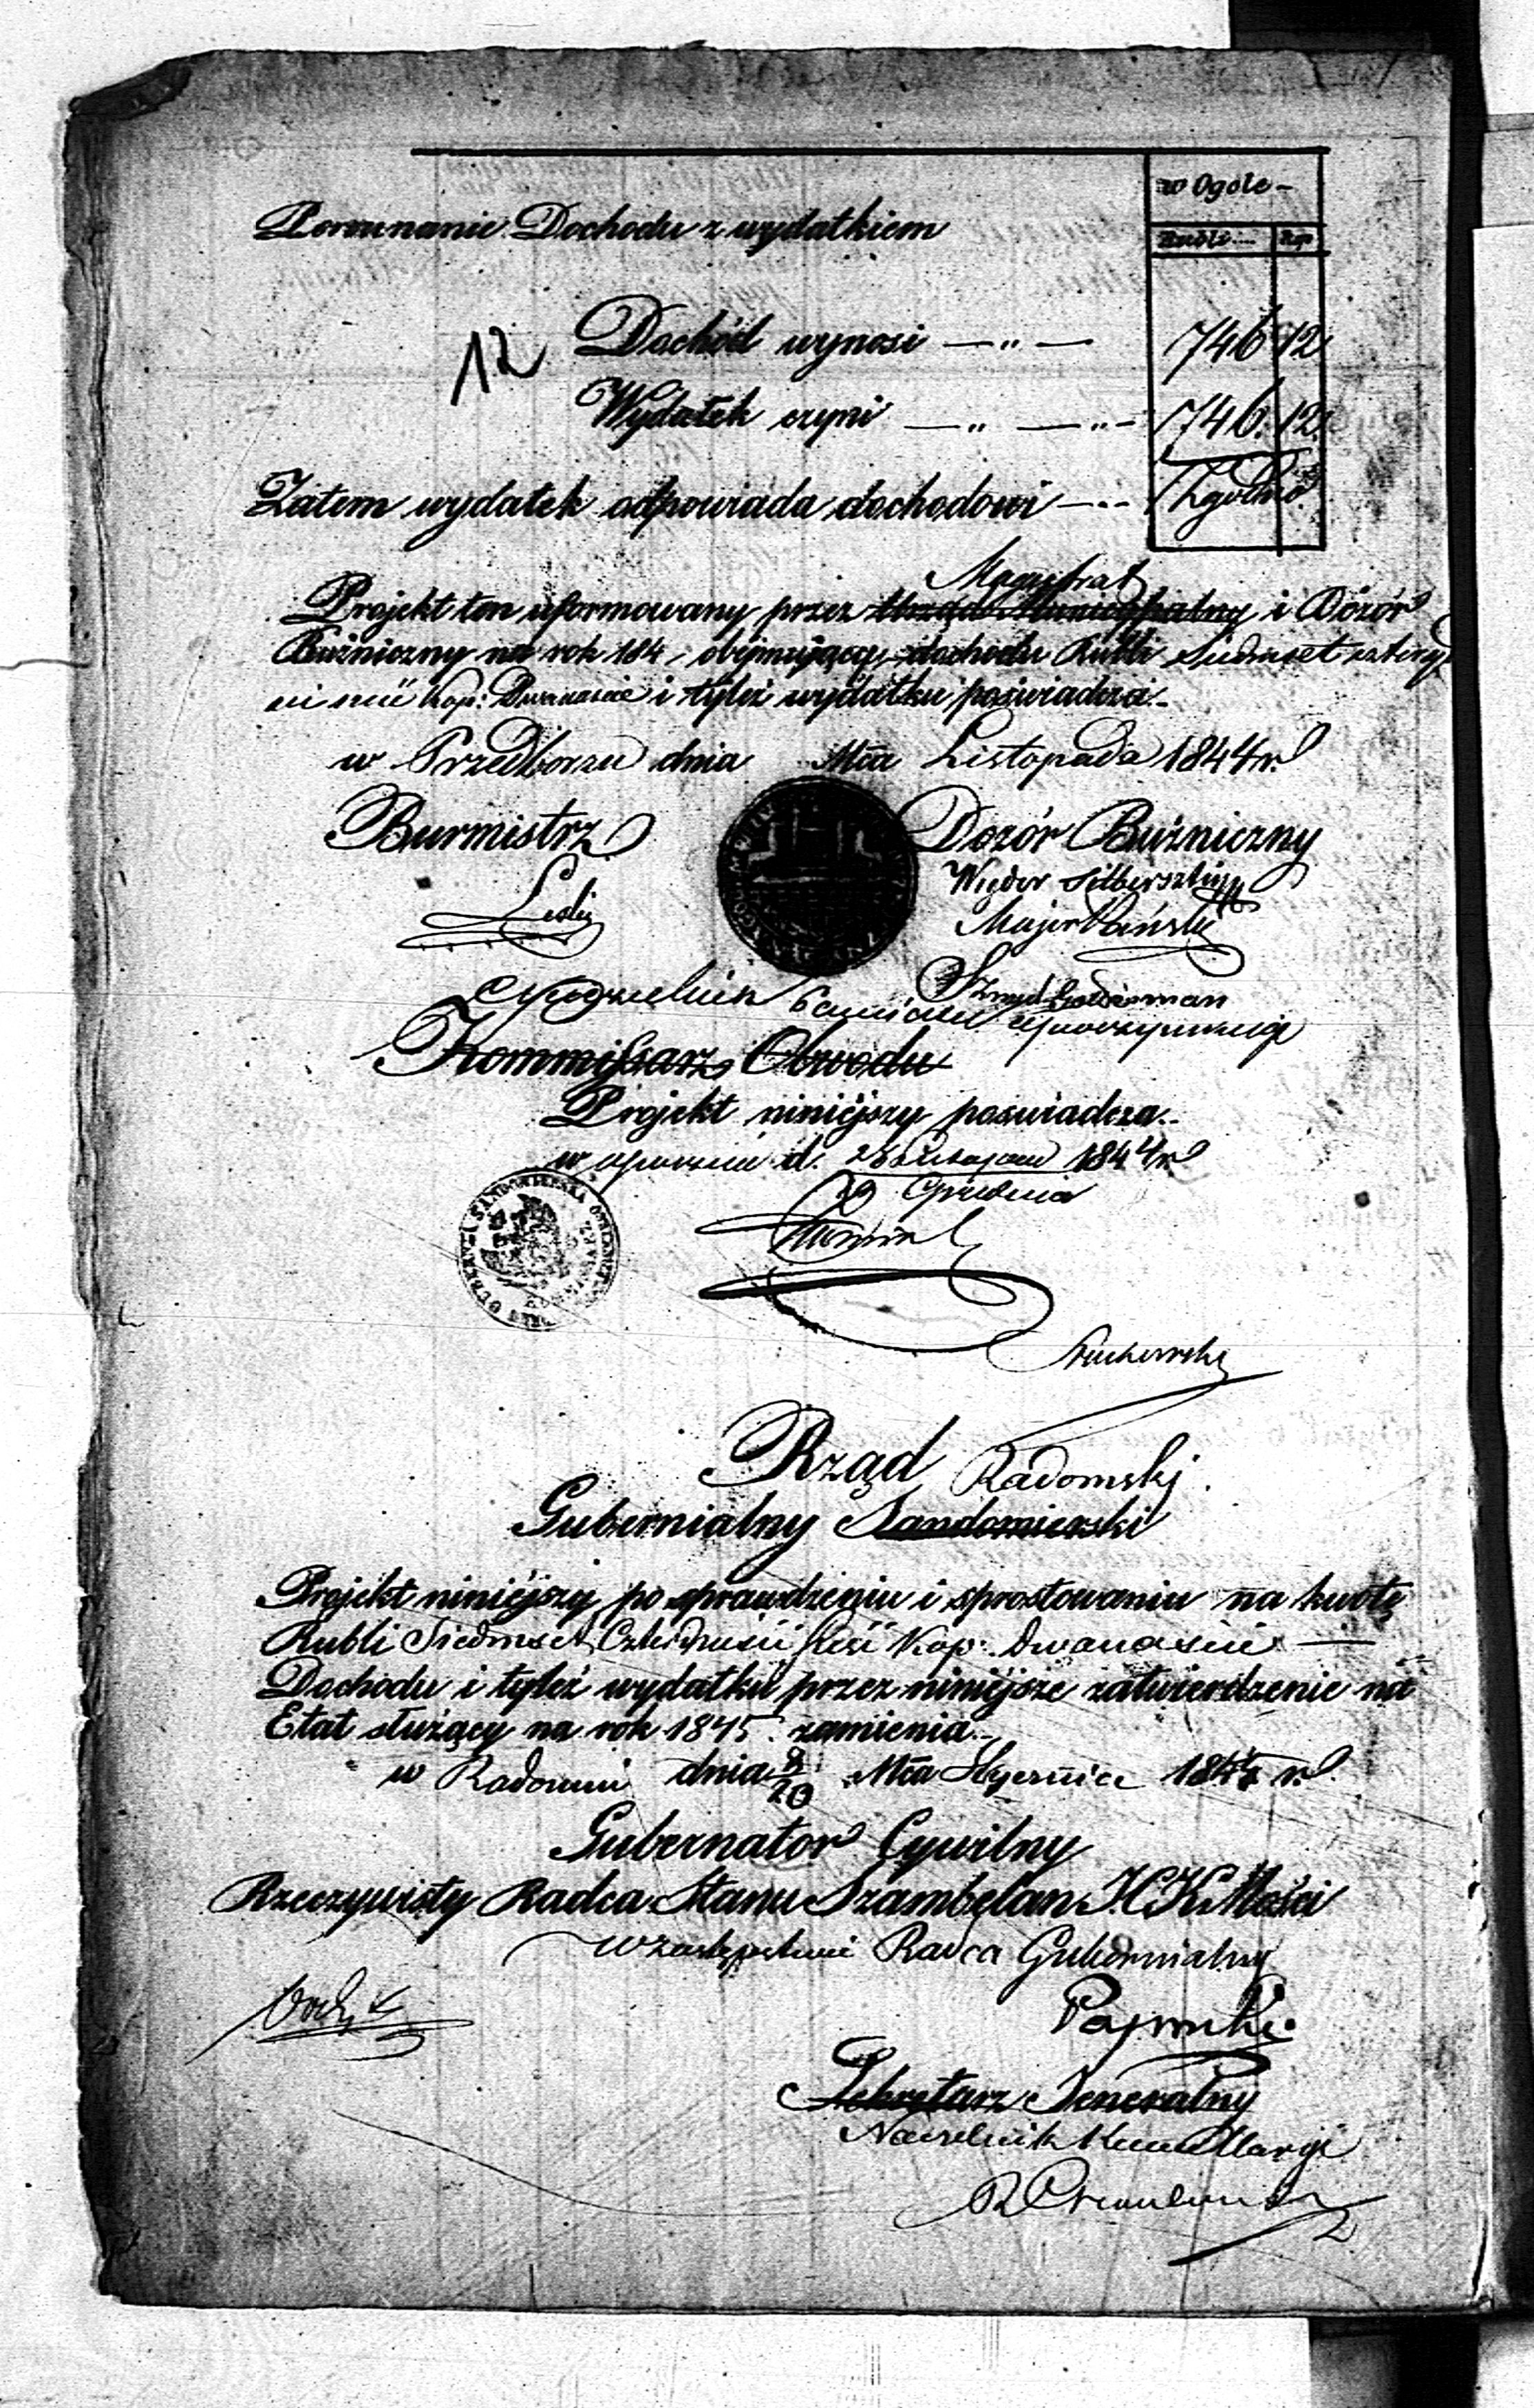 w Ogóle –
Porównanie Dochodu z wydatkiem
Rubli Kop
12 Dochód wynosi — „ — 746 12
Wydatek czyni — „ — „ – 746. 12.
Zatem wydatek odpowiada dochodowi – – – Zgodno
Magistrat
Projekt ten uformowany przez Urząd Municypalny i Dozór
Bużniczny na rok 184 , obejmujący dochodu Rubli Siedmset
Kop: Dwanaście i tyleż wydatku poświadcza.–
w Przedborzu dnia Mca Listopada 1844 r.
Burmistrz Dozór Bużniczny
Majer
Naczelnik Powiatu Opoczyńskiego
Kommissarz Obwodu
Projekt niniéjszy poświadcza..
w Opocznie d. 28 Listopada 1844 r
Grudnia
Rząd Radomski.
Gubernialny Sandomierski
Projekt niniéjszy po sprawdzeniu i sprostowaniu na kwotę
Rubli Siedmset Czterdzieści sześć Kop: dwanaście —
Dochodu i tyleż wydatku przez niniéjsze zatwierdzenie na
Etat służący na rok 1845. zamienia..
w Radomiu dnia 8/20 Mca Stycznia 184 r.
Gubernator Cywilny
Rzeczywisty Radca Stanu Szambelan J.C.K. Mości
w zastępstwie Radca Gubernialny
Sekretarz Jeneralny
Naczelnik Kancellaryi